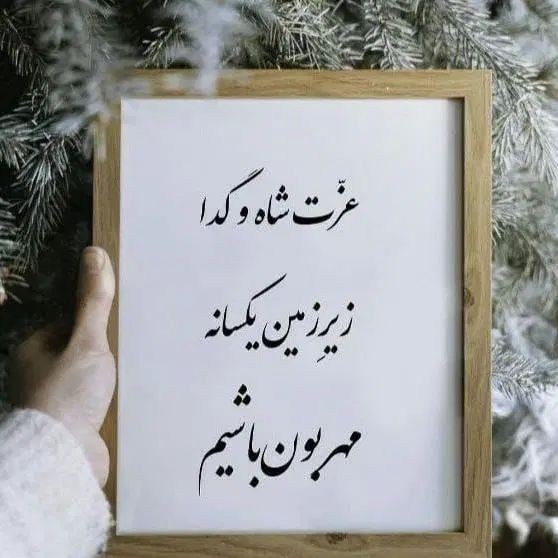 عزّت شاه و گدا
زیرِ زمین یکسانه
مهربون باشیم